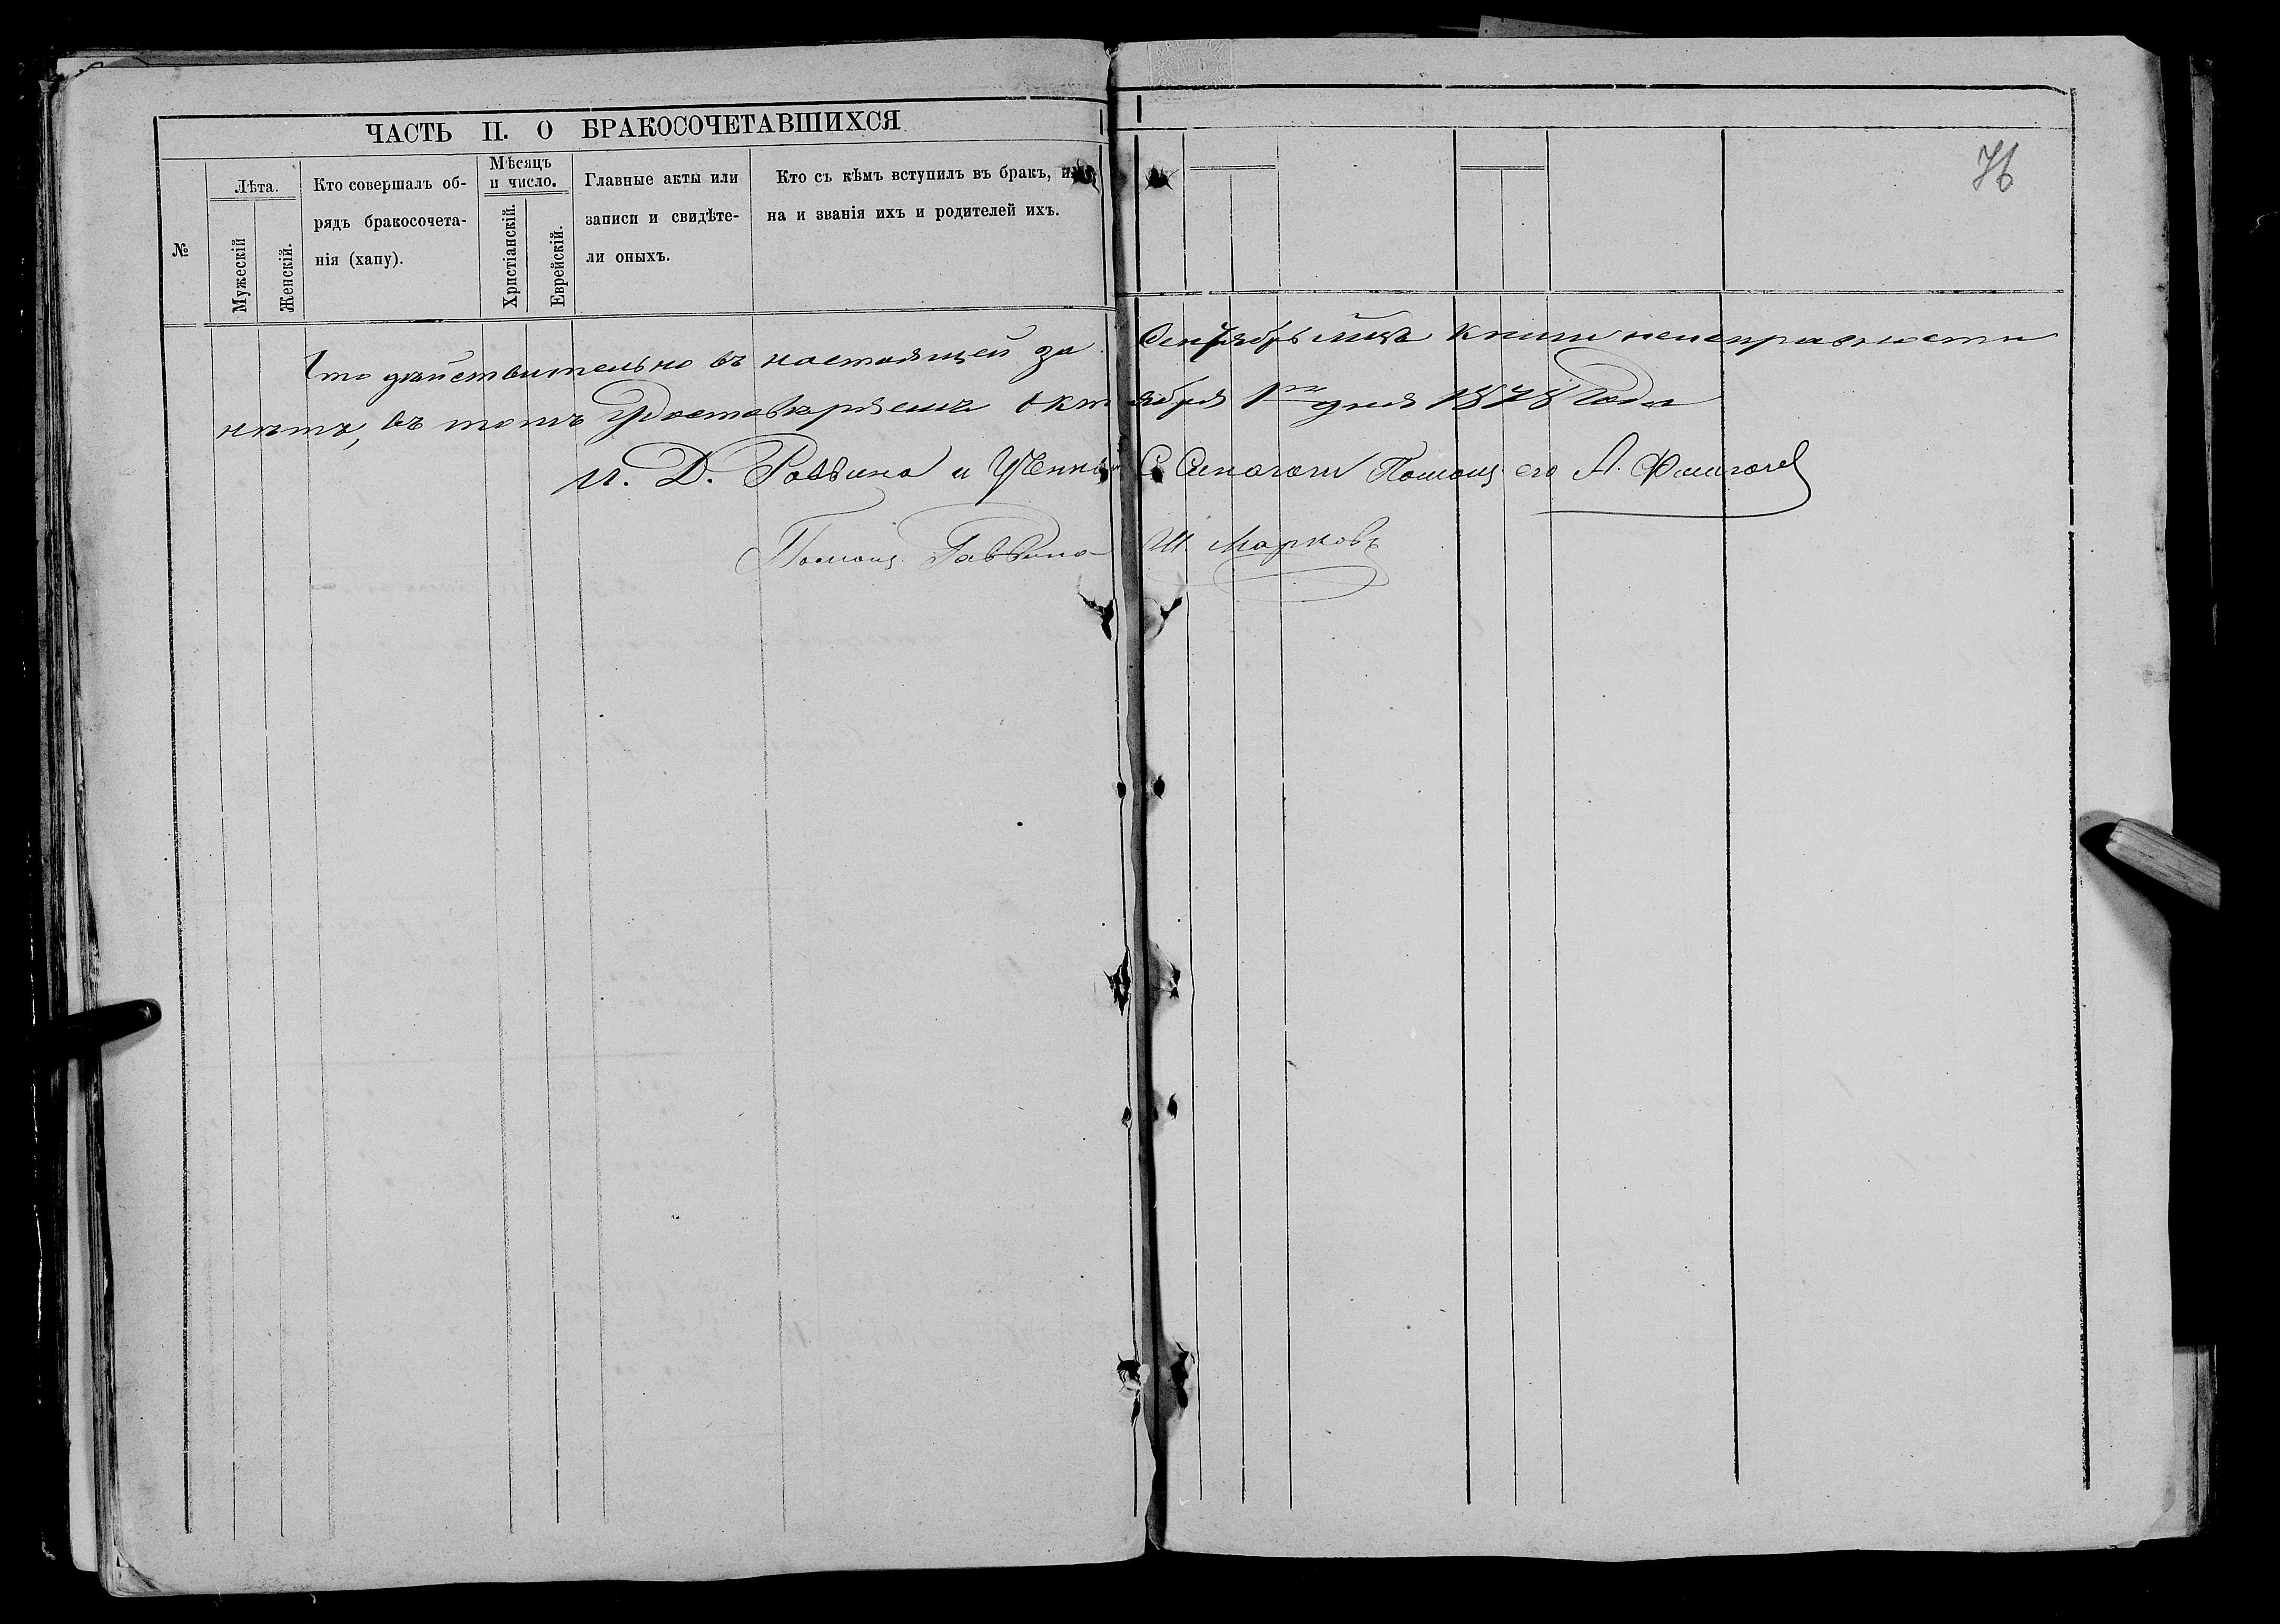 ЧАСТЬ II. О БРАКОСОЧЕТАВШИХСЯ
76
№
Лѣта.
Мужескій
Женскій.
Кто совершалъ об-
рядъ бракосочета-
нія (хапу).
Мѣсяцъ
и число.
Христіанскій.
Еврейскій.
Главные акты или
записи и свидѣте-
ли оныхъ.
Кто съ кѣмъ вступилъ въ бракъ, и
на и званія ихъ и родителей ихъ.
Что дѣйствительно въ настоящей за Сентябрь мцъ книги неисправности
нѣтъ, въ томъ удостовѣряемъ октября 1го дня 1878 года
И. Д. Раввина и Ученый С. Помощ его А.
Помощ. Раввина Ш. Марковъ